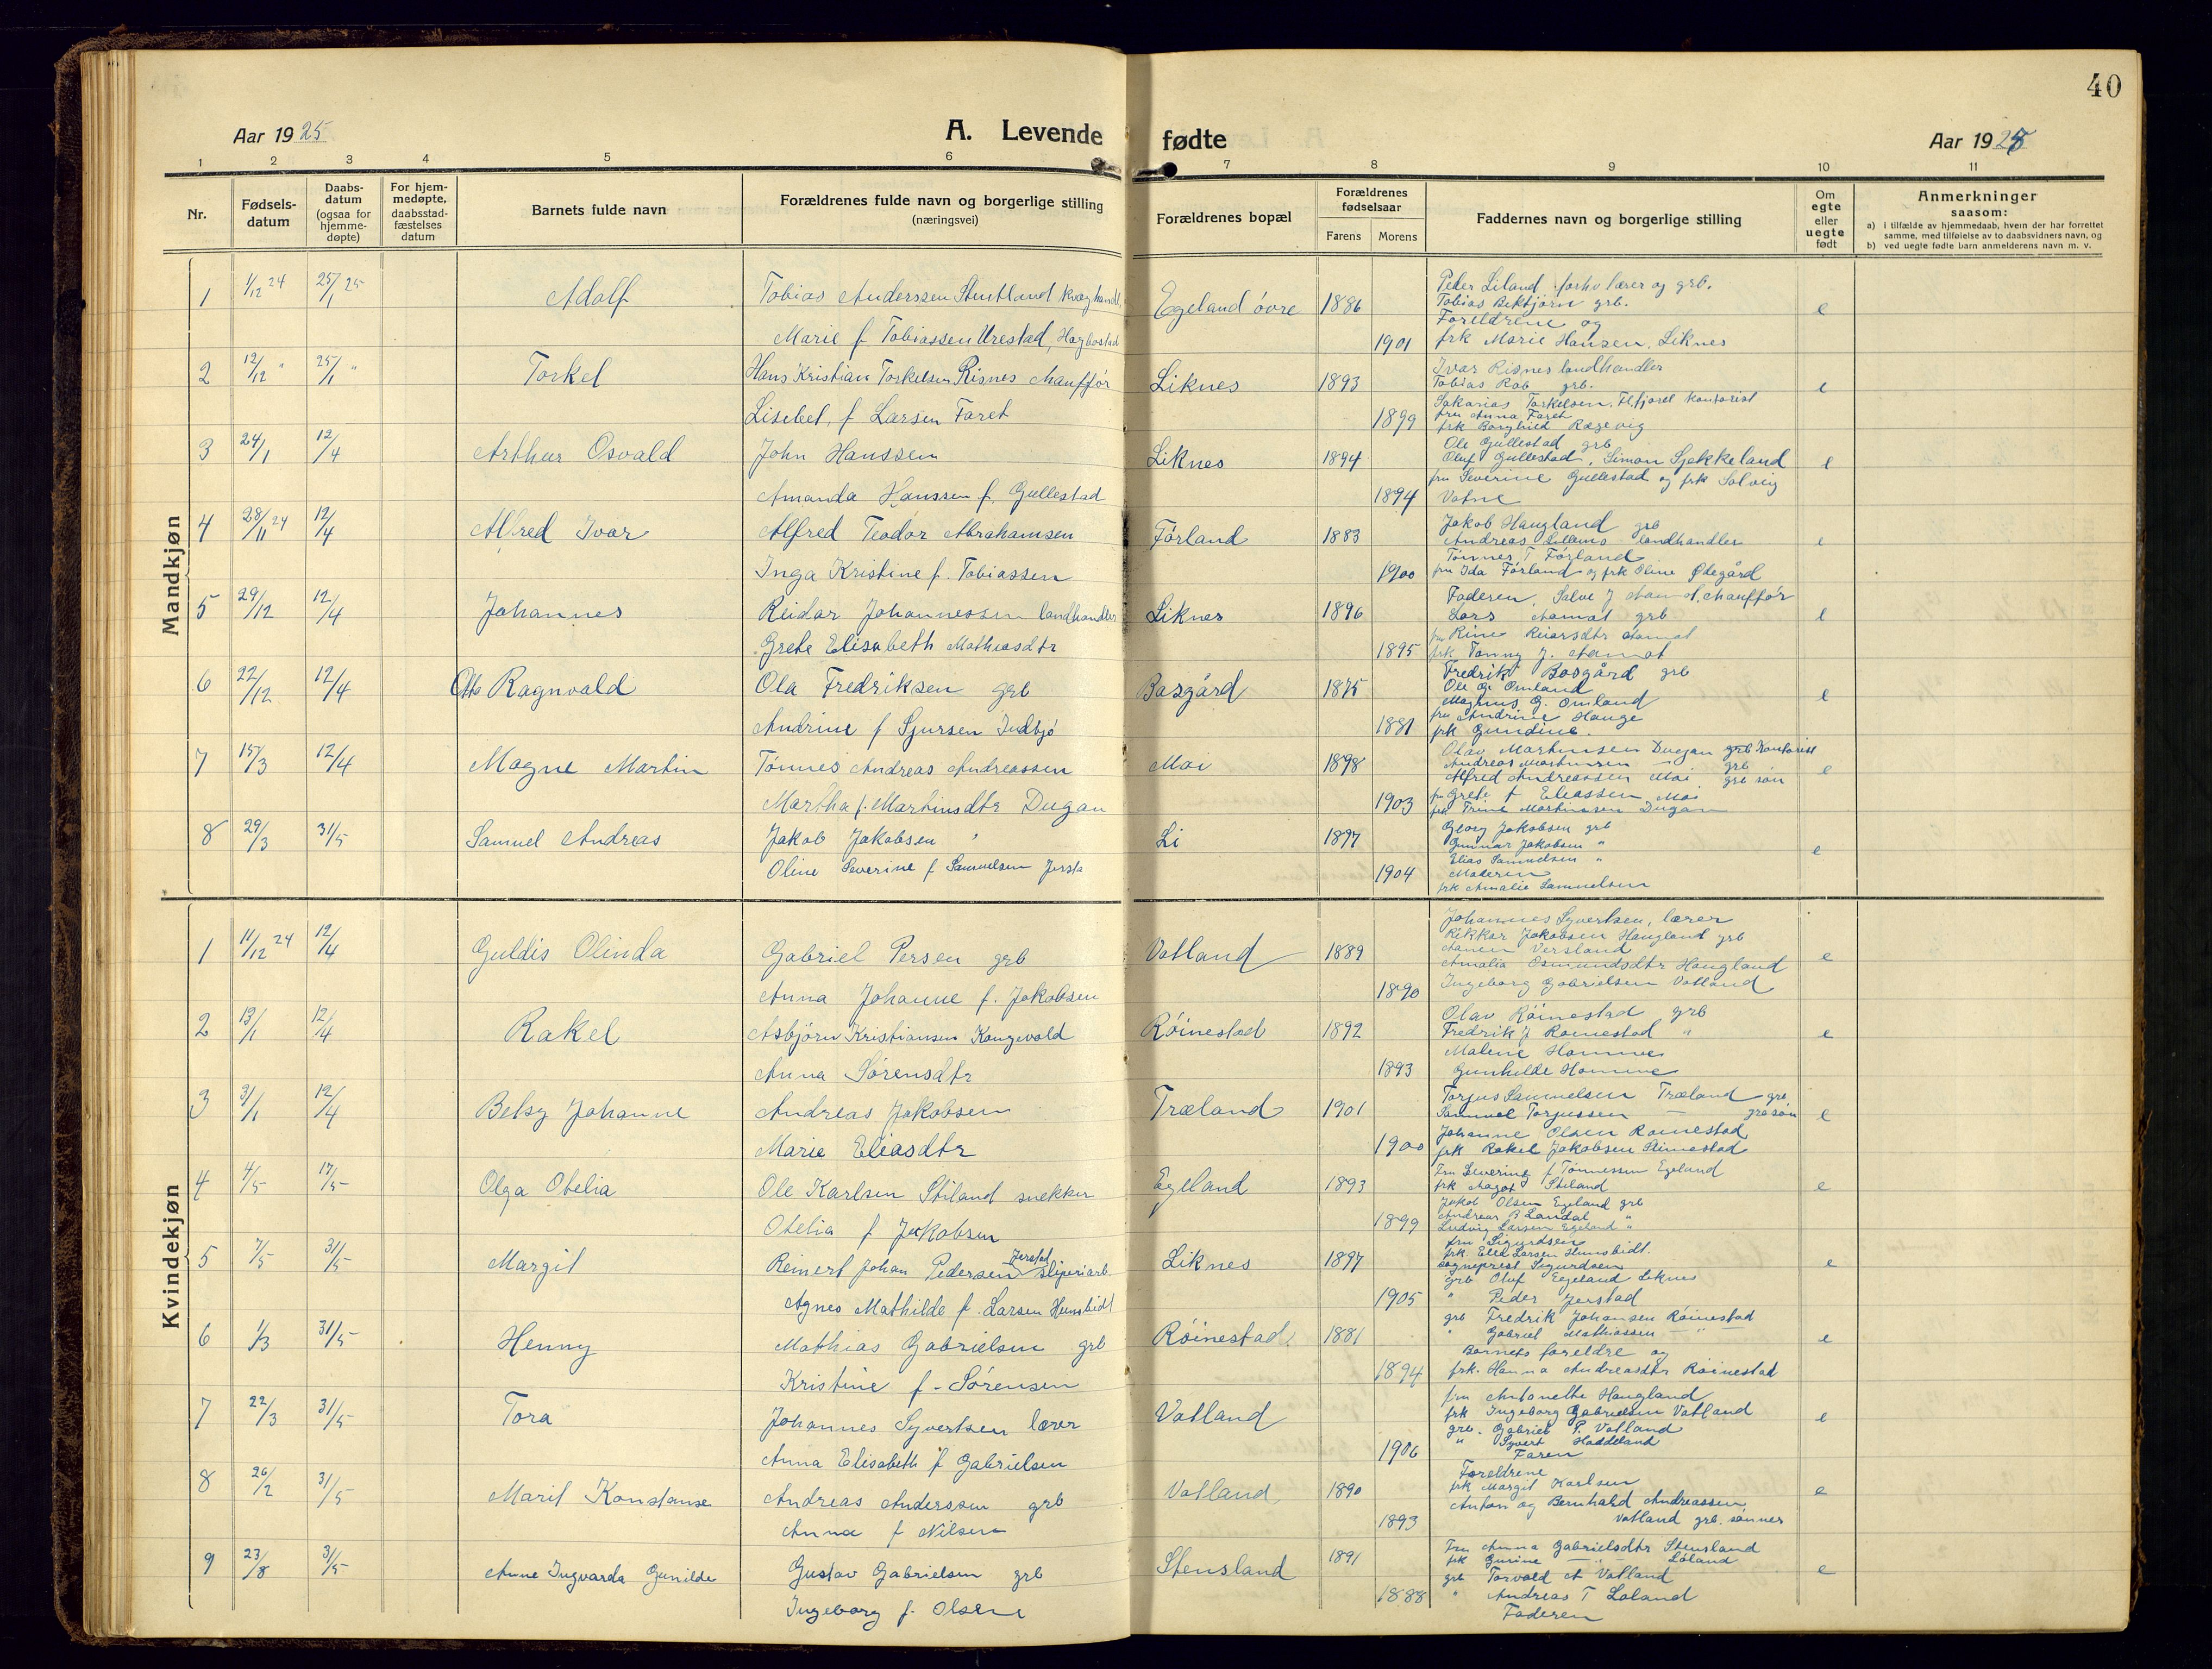 40
Aar 1925
A. Levende fødte
Aar 1925
1 2 3 4 5 6 7 8 9 10 11
Nr.
Fødsels-datum
Daabs-datum (ogsaa for hjemme-døpte)
For hjem-medøpte, daabsstad-fæstelses datum
Barnets fulde navn
Forældrenes fulde navn og borgerlige stilling (næringsvei)
Forældrenes bopæl
Forældrenes fødselsaar
Farens Morens
Faddernes navn og borgerlige stilling
Om egte eller uegte født
Anmerkninger saasom:
a) i tilfælde av hjemmedaab, hvem der har forrettet samme, med tilføielse av to daabsvidners navn, og
b) ved uegte fødte barn anmelderens navn m. v.
Mandkjøn
1 1/12 24 25/1 25 Adolf Tobias Anderssen Stuntland kvæghandl. Egeland øvre 1886 Peder Liland forhv lærer og grb. e
Tobias Bektjørn grb.
Foreldrene og
Marie f Tobiassen Urestad, Hægbostad 1901 frk Marie Hansen, Liknes
2 12/12 " 25/1 " Torkel Hans Kristian Torkelsen Risnes chauffør Liknes 1893 Ivar Risnes landhandler e
Tobias Rob grb.
Sakarias Torkelsen, Fl.fjord kontorist
Lisebet, f Larsen Faret 1899 fru Anna Faret
frk Borghild Rægevig
3 24/1 12/4 Arthur Osvald John Hanssen Liknes 1894 Ole Gullestad grb e
Oluf Gullestad, Simon Sjekkeland
fru Severine Gullestad og frk Solveig
Amanda Hanssen f. Gullestad 1894 Vatne
4 28/11 24 12/4 Alfred Ivar Alfred Teodor Abrahamsen Førland 1883 Jakob Haugland grb e
Andreas landhandler
Tønnes T Førland
Inga Kristine f. Tobiassen 1900 fru Ida Førland og frk Oline Ødegård
5 29/12 12/4 Johannes Reidar Johannessen landhandler Liknes 1896 Faderen, Salve J Aamot, chauffør e
Lars Aamot grb
fru Rine Reiarsdtr Aamot
Grete Elisabeth Mathiasdtr 1895 frk Fanny J. Aamot
6 22/12 12/4 Otto Ragnvald Ola Fredriksen grb Bosgård 1875 Fredrik Bosgård grb e
Ole G. Omland
Magnus G. Omland
Andrine f Sjursen Indbjø 1881 fru Andrine Hauge
frk Gundine.
7 15/3 12/4 Magne Martin Tønnes Andreas Andreassen Moi 1898 Olav Martinsen Dugan grb Kontorist e
Andreas Martinsen — grb
Alfred Andreassen Moi grb søn
Martha f. Martinsdtr Dugan 1903 fru Grete f Eliassen Moi
frk Trine Martinsen Dugan
8 29/3 31/5 Samuel Andreas Jakob Jakobsen Li 1897 Georg Jakobsen grb e
Gunnar Jakobsen "
Elias Samuelsen "
Oline Severine f Samuelsen Jersta 1904 Moderen
frk Amalie Samuelsen
Kvindekjøn
1 11/12 24 12/4 Guldis Olinda Gabriel Persen grb Vatland 1889 Johannes Syvertsen, lærer e
Rikkar Jakobsen Haugland grb
Versland
Amalia Osmundsdtr Haugland
Anna Johanne f. Jakobsen 1890 Ingeborg Gabrielsen Vatland
2 13/1 12/4 Rakel Asbjørn Kristiansen Kongevold Røinestad 1892 Olav Røinestad grb e
Fredrik J Røinestad "
Malene Homme
Anna Sørensdtr 1893 Gunhilde Homme
3 31/1 12/4 Betsy Johanne Andreas Jakobsen Træland 1901 Torjus Samuelsen Træland grb e
Samuel Torjussen — grb søn
Johanne Olsen Roinestad
Marie Eliasdtr 1900 frk Rakel Jakobsen Stimestad
4 4/5 17/5 Olga Otelia Ole Karlsen Stiland snekker Egeland 1893 Fru Severine f Tønnessen Egeland e
frk Aagot Stiland
Jakob Olsen Egeland grb
Otelia f Jakobsen 1899 Andreas B Landal "
Ludvig Larsen Egeland "
5 7/5 31/5 Margit Reinert Johan Pedersen Jerstad sliperiarb. Liknes 1897 fru Sigurdsen e
frk. Elea Larsen Hunsbidt.
sogneprest Sigurdsen
grb Oluf Egeland Liknes
Agnes Mathilde f. Larsen Hunsbidt 1905 " Peder Jerstad
6 1/3 31/5 Henny Mathias Gabrielsen grb Røinestad 1881 grb Fredrik Johansen Røinestad e
" Gabriel Mathiassen — " —
Barnets foreldre og
Kristine f. Sørensen 1894 frk. Hanna Andreasdtr Røinestad
7 22/3 31/5 Tora Johannes Syvertsen lærer Vatland fru Antonette Haugland e
frk Ingeborg Gabrielsen Vatland
grb. Gabriel P. Vatland
" Syvert Haddeland
Anna Elisabeth f Gabrielsen 1906 Faren
8 26/2 31/5 Marit Konstanse Andreas Anderssen grb Vatland 1890 Foreldrene e
frk Margit Karlsen
Anton og Bernhard Andreassen
Anna f Nilsen 1893 Vatland grb. sønner
9 23/8 31/5 Anne Ingvarda Gunilde Gustav Gabrielsen grb Stensland 1891 Fru Anna Gabrielsdtr Stensland e
frk Gurine — " — Løland
grb Torvald A Vatland
Ingeborg f. Olsen 1888 " Andreas T Løland
Faderen